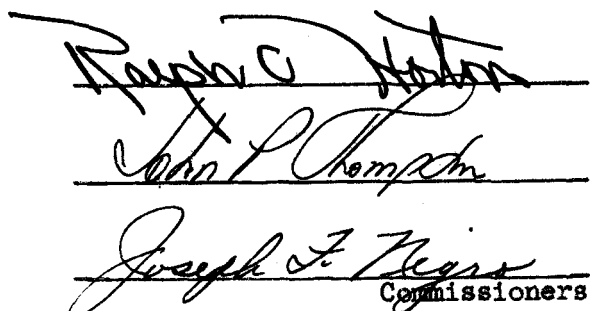 Ralph C Horton
John P Thompson
Joseph F. Negro
Commissioners